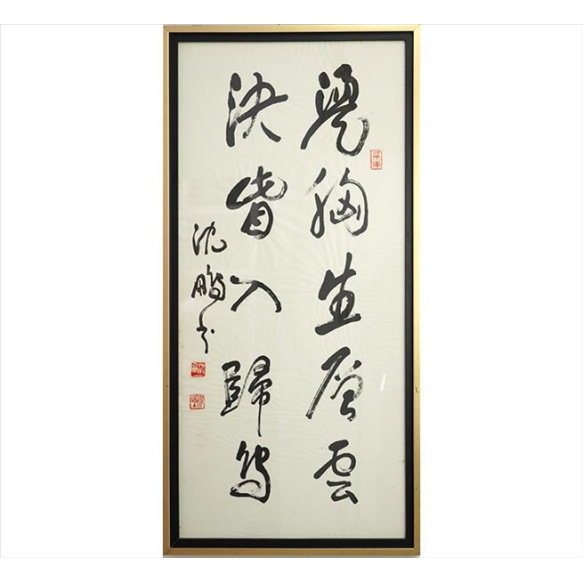 盪胸生層雲
決眥入歸鳥
沈鵬書